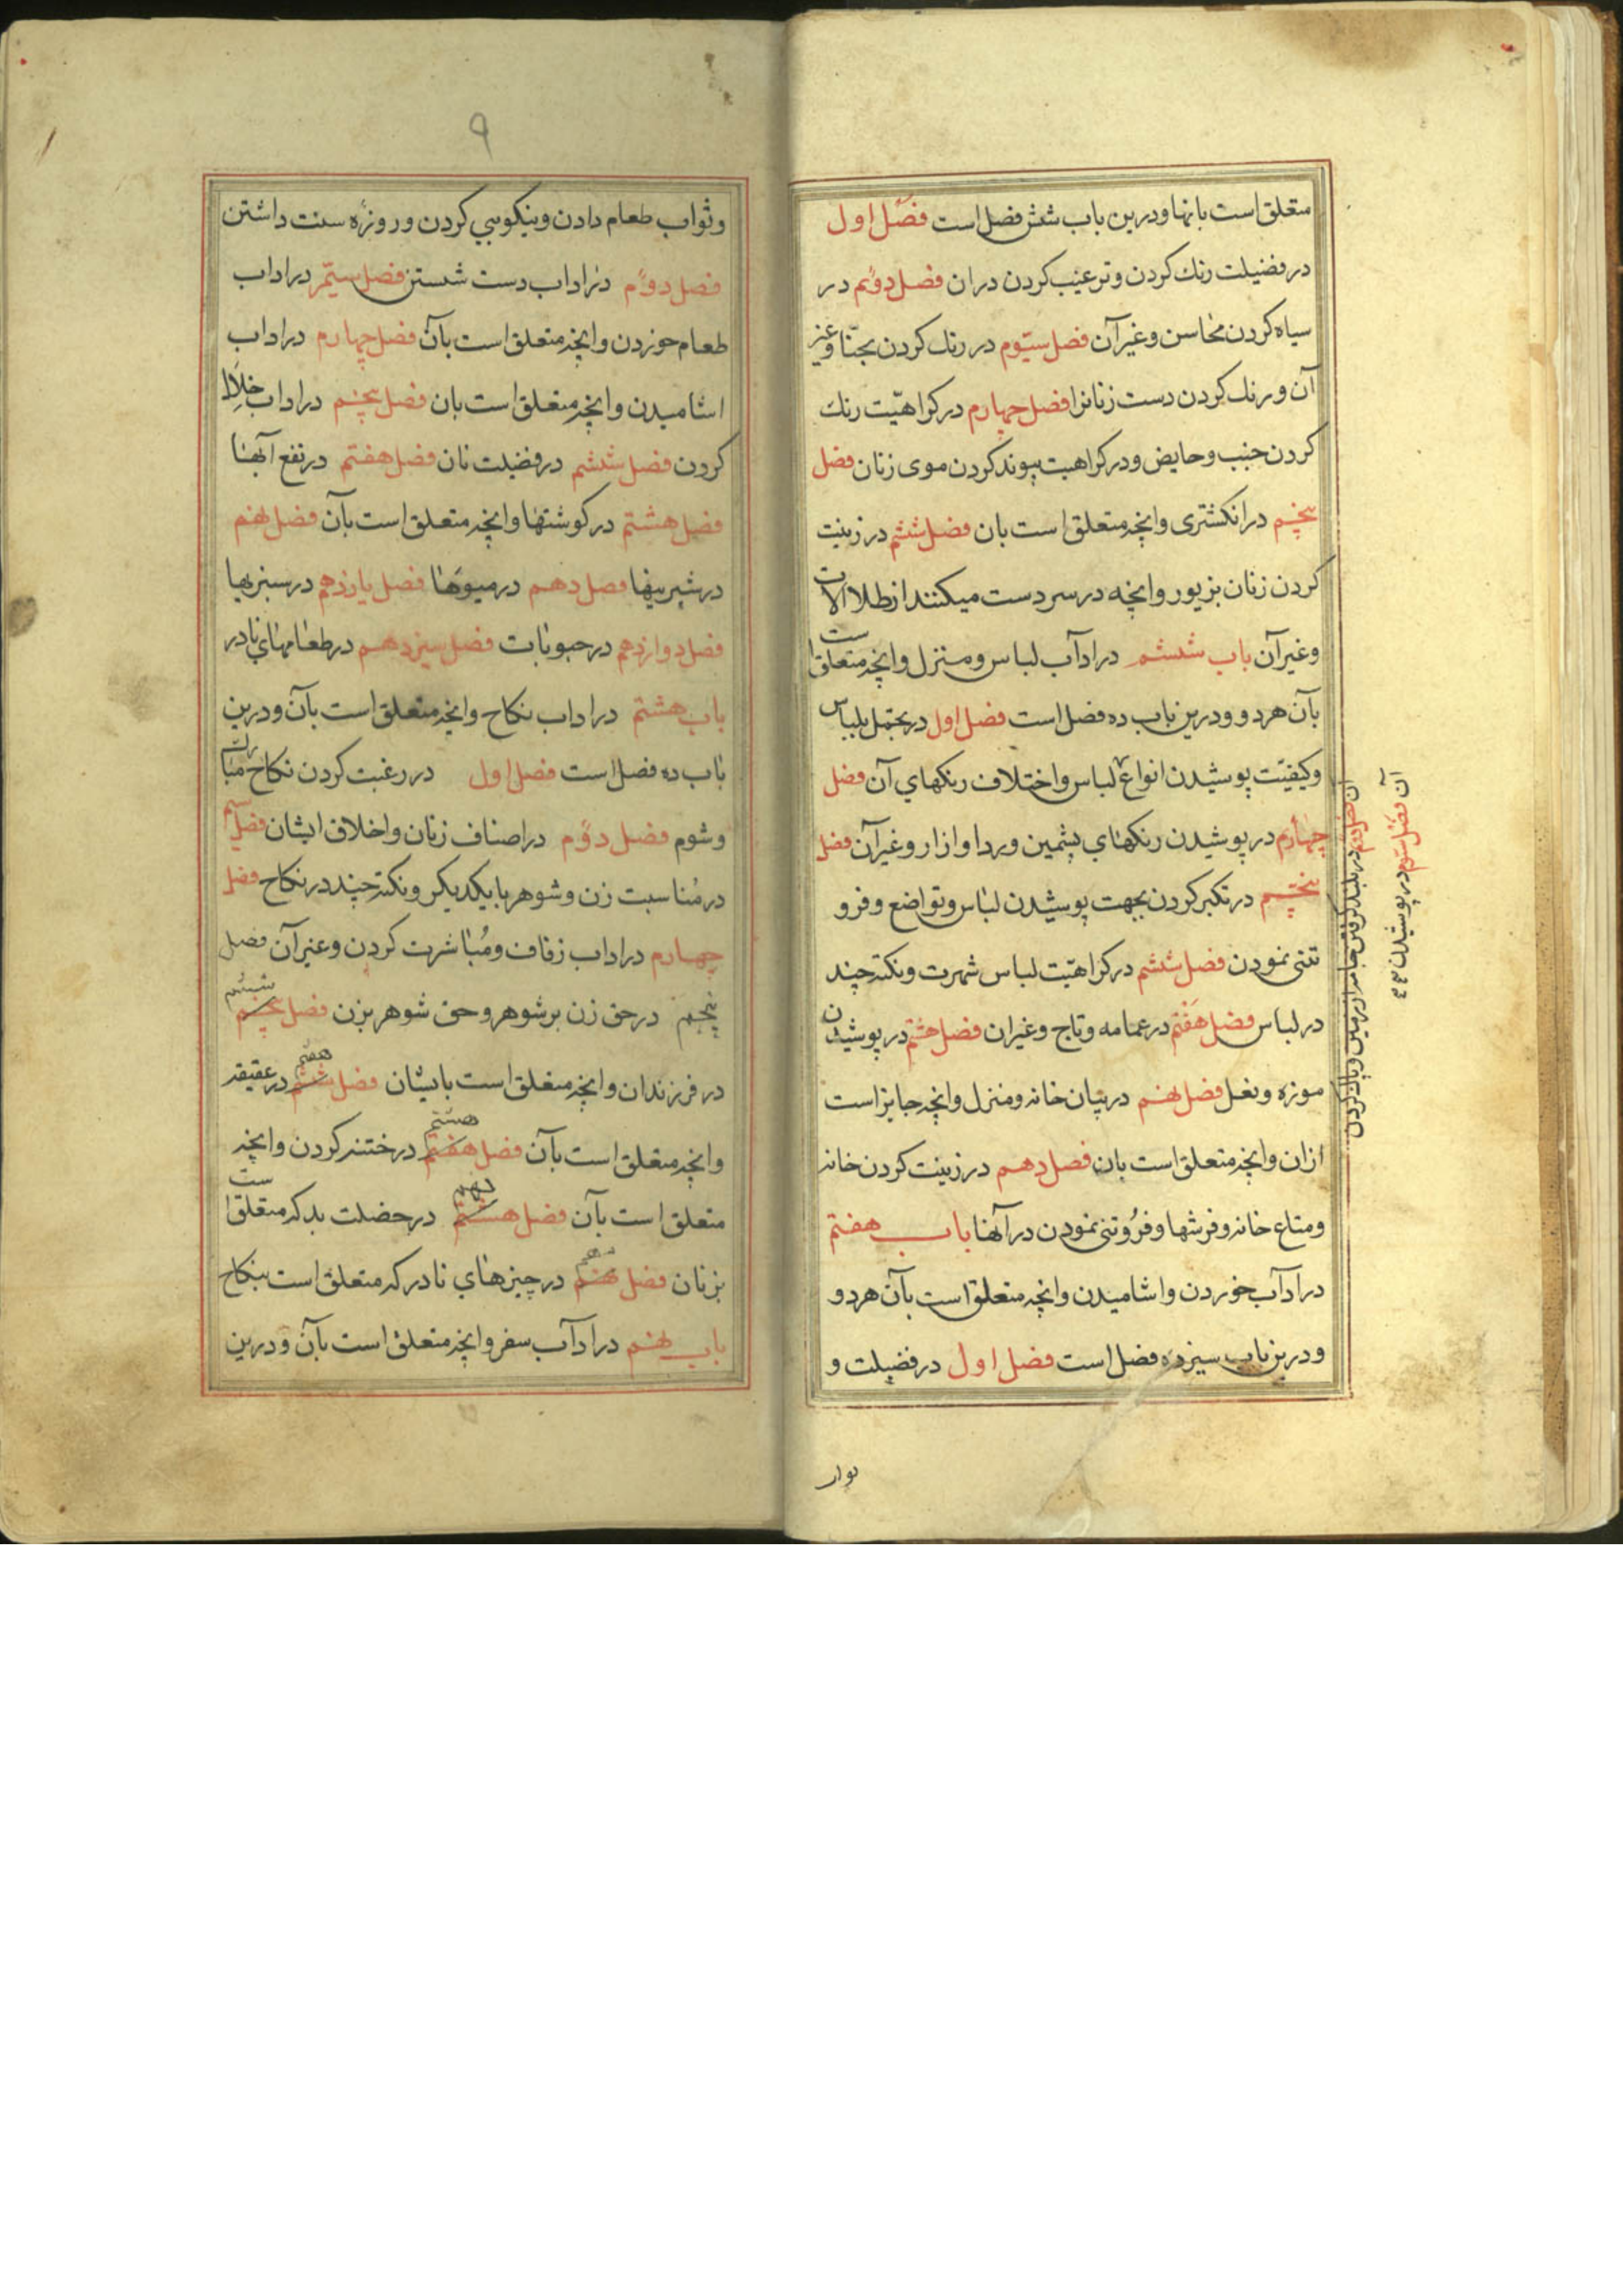 متعلق است بانها ودرین باب شش فضل است فضل اول
در فضیلت رنك کردن وترغیب کردن دران فضل دوّم در
سیاه کردن محاسن وغیرآن فضل سیّوم در رنك کردن بحنّا وغیر
آن ورنك کردن دست زنانرا فضل چهارم در کراهیّت رنك
کردن جنب وحایض ودر کراهیت پیوند کردن موی زنان فضل
پنچم در انکشتری وانچه متعلق است بان فضل ششم در زینت
کردن زنان بزیور وانچه در سر دست میکنند از طلا الات
وغیرآن باب ششم در ادآب لباس ومنزل وانچه متعلق است
بآن هردو ودرین باب ده فضل است فضل اول در تجمّل بلباس
وکیفیّت پوشیدن انواع لباس واختلاف رنکهاي آن فضل
چهارم در پوشیدن رنکهاي پشمین وردا وازار وغیرآن فضل
پنچم در تکبر کردن بجهت پوشیدن لباس وتواضع وفرو
تنی نمودن فضل ششم در کراهیّت لباس شهرت ونکته چند
در لباس فضل هفتم در عمامه وتاج وغیران فضل هشتم در پوشیدن
موزه ونعل فضل نهم در بیان خانه ومنزل وانچه جایز است
ازان وانچه متعلق است بان فصل دهم در زینت کردن خانه
ومتاع خانه وفرشها وفرُوتنی نمودن در آنها باب هفتم
در ادآب خوردن واشامیدن وانچه متعلق است بآن هردو
ودرین باب سیزده فضل است فضل اول در فضیلت و
آن فضل دوم در بلند کردن جامه از زمین وپاك کردن
آن فضل سیّوم در پوشیدن
٩
وثواب طعام دادن ونیکویي کردن وروزهٔ سنت داشتن
فصل دوّم در اداب دست شستن فضل سیّم در اداب
طعام خوردن وانچه متعلق است بآن فضل چهارم در اداب
اشامیدن وانچه متعلق است بان فضل پنچم در اداب خلال
کردن فضل ششم در فضیلت نان فضل هفتم در نفع آبها
فضل هشتم در کوشتها وانچه متعلق است بآن فضل نهم
در شیرینیها فصل دهم در میوها فصل یازدهم در سبزیها
فضل دوازدهم در حبوبات فضل سیزدهم در طعامهاي نادر
باب هشتم در اداب نکاح وانچه متعلق است بآن ودرین
باب ده فصل است فضل اول در رغبت کردن نکاح مبارك
وشوم فضل دوّم در اصناف زنان واخلاق ایشان فضل سیّم
در مُناسبت زن وشوهر با یکدیکر ونکته چند در نکاح فضل
چهارم در اداب زفاف ومُباشرت کردن وغیرآن فضل
پنجم در حق زن بر شوهر وحق شوهر بزن فضل پنچم ششم
در فرزندان وانچه متعلق است بایشان فضل ششم هفتم در عقیقه
وانچه متعلق است بآن فضل هفتم هشتم در ختنه کردن وانچه
متعلق است بآن فضل هشتم نهم در خصلت بد که متعلق است
بزنان فضل نهم دهم در چیزهاي نادر که متعلق است بنکاح
باب نهم در ادآب سفر وانچه متعلق است بآن ودرین